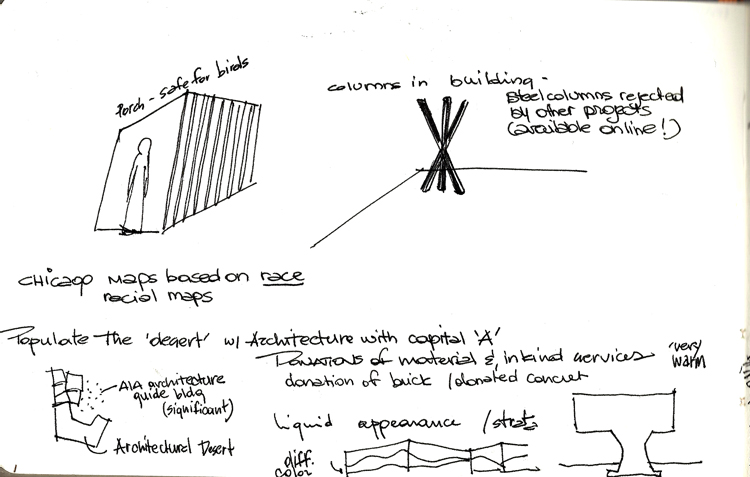 Porch - safe for birds
columns in building -
steel columns rejected
by other projects
(available online!)
Chicago maps based on race
racial maps
Populate the 'desert' w/ Architecture with capital 'A'
Donations of material & inkind services
donation of brick / donated concret
'very'
warm
AIA architecture
guide bldg
(significant)
Architecturel Desert
Liquid appearance / strat.
diff.
color